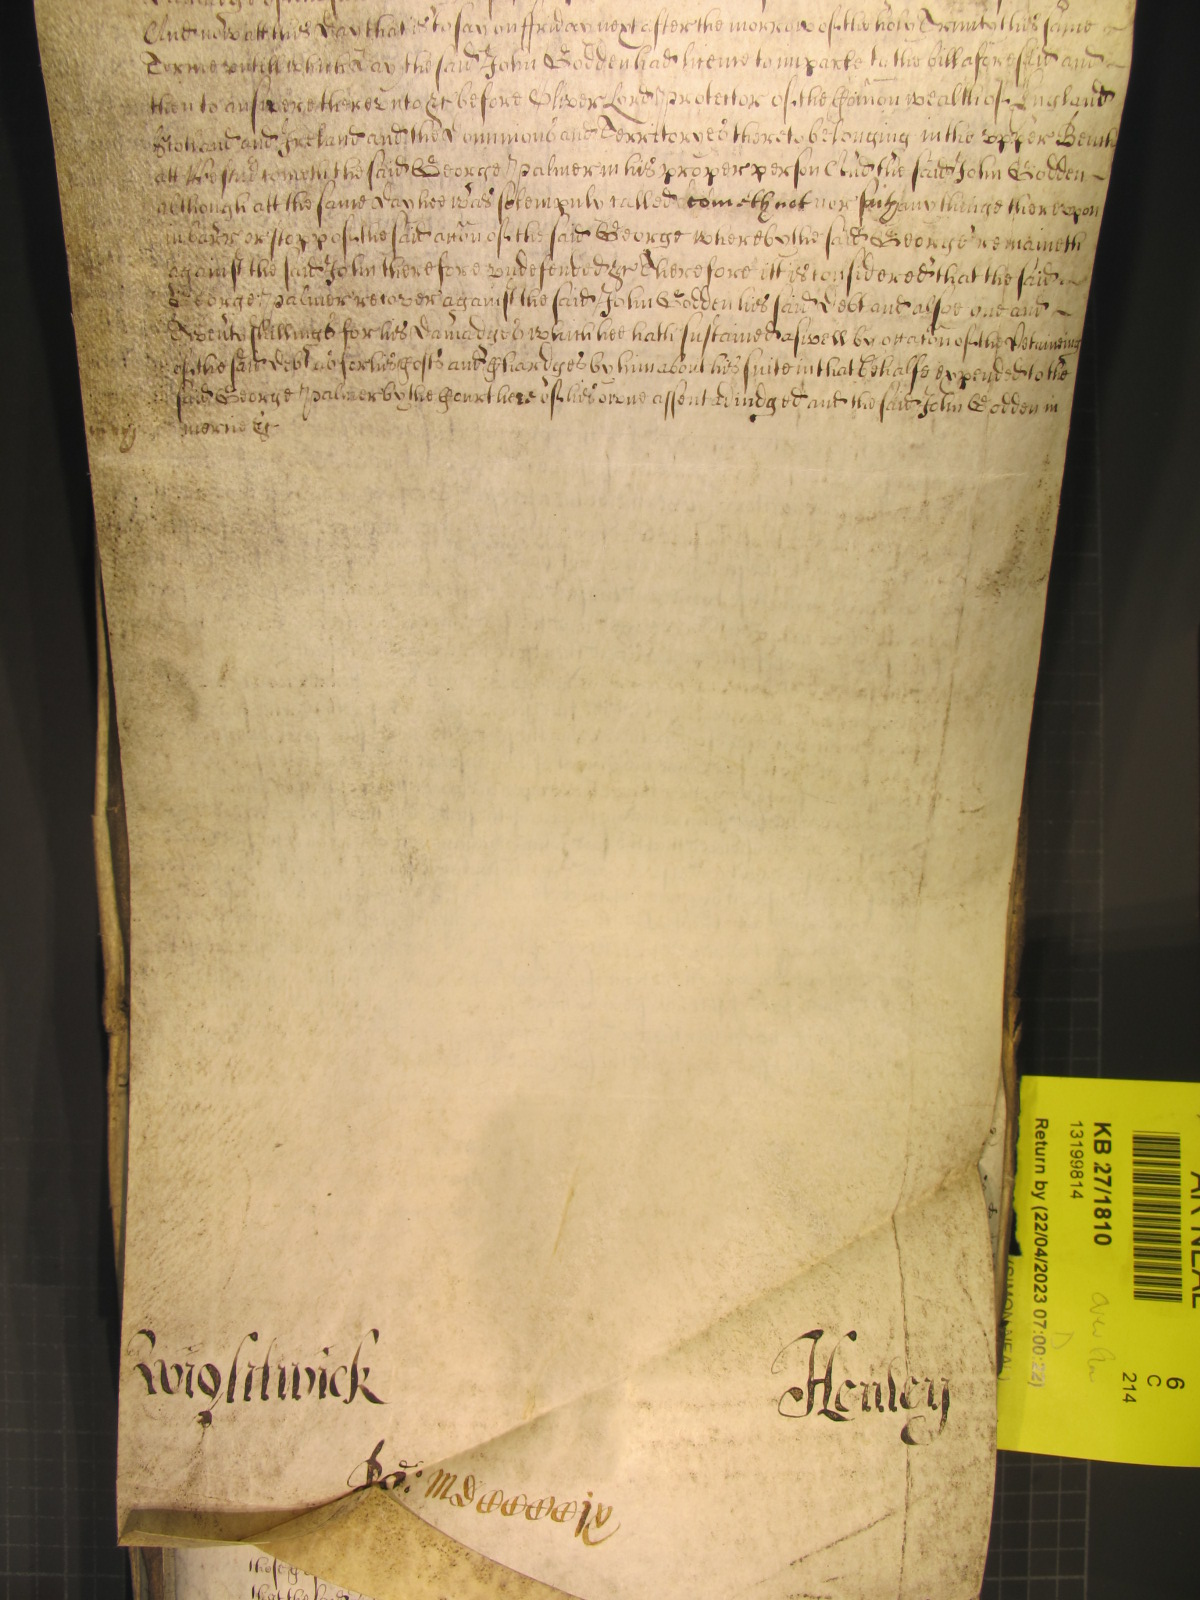 And now att this day that is to say on ffryday next after the morrow of the holy Trinity this same
Terme untill which day the said John Godden had licence to imparle to the bill aforesaid and
then to answere thereunto &c before Oliver Lord Protector of the Comon wealth of England
Scotland and Ireland and the Dominions and Territoryes thereto belonging in the upper Bench
att Westm cometh the said George Palmer in his proper person And the said John Godden
although att the same day hee was solempnly called cometh not nor saith any thinge thereupon
in barr or stopp of the said accon of the said George whereby the said George remaineth
against the said John therefore undefended &c Therefore itt is considered that the said
George Palmer recover against the said John Godden his said debt and alsoe one and
Twenty shillings for his damadges which hee hath susteined aswell by occacon of the deteineing
of the said debt as for his Costs and Chardges by him about his suite in that behalfe expended to the
said George Palmer by the Court here of his owne assent adiudged and the said John Godden in
mercie &c
Wightwick
Henley
Ro: MDCCCCiv
those
that the said
KB 27/1810
13199814
Return by (22/04/2023 07:00:22)
(SIMON NEAL)
6
C
214